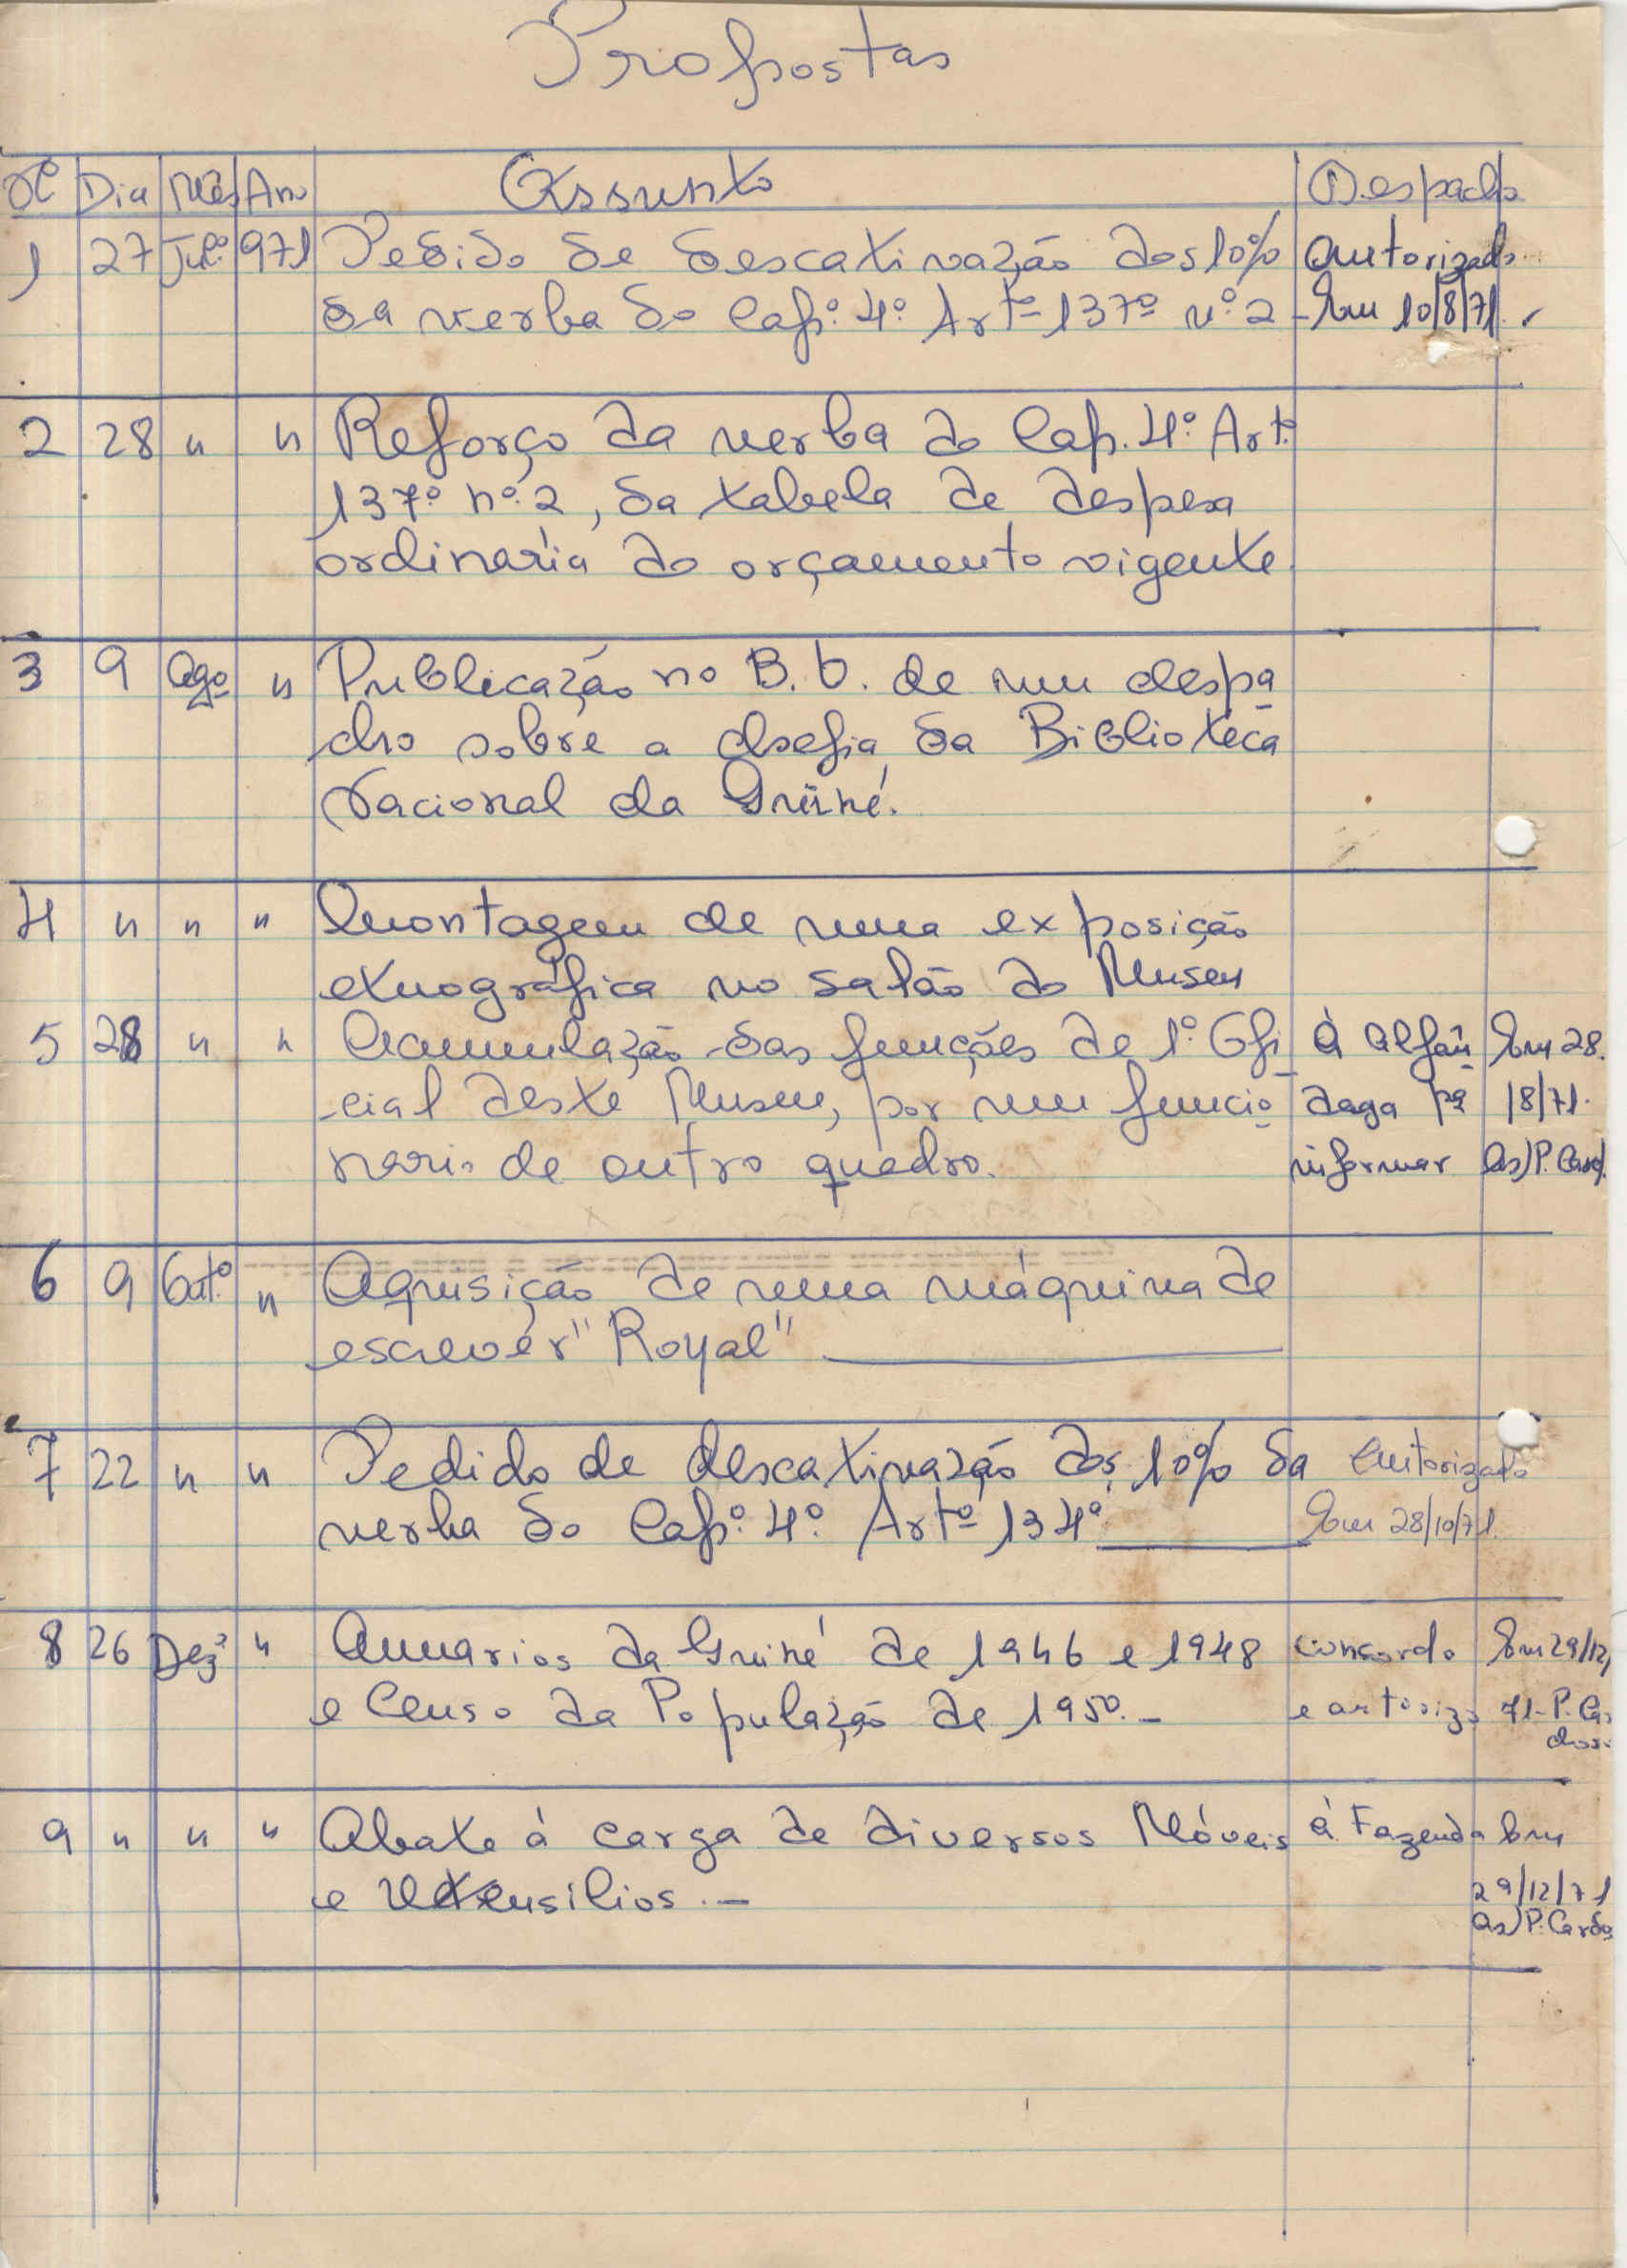 Propostas
Nº Dia Mês Ano Assunto Despacho
1 27 Jul.º 971 Pedido de descativação dos 10% Autorizado
da verba do Cap.º 4.º Artº 137º nº 2 - Em 10/8/71.
2 28 " " Reforço da verba do Cap. 4.º Art.º
137.º nº 2, da tabela de despesa
ordinária do orçamento vigente
3 9 Agº " Publicação no B. O. de um despa
cho sobre a chefia da Biblioteca
Nacional da Guiné.
4 " " " Montagem de uma exposição
etnográfica no salão do Museu
5 28 " " Acumulação das funções de 1.º Ofi À Alfân Em 28.
cial deste Museu, por um funcio daga pª /8/71.
nario de outro quadro. informar as) P. Card.
6 9 Out.º " Aquisição de uma máquina de
escrever "Royal"
7 22 " " Pedido de descativação dos 10% da Autorizado
verba do Cap.º 4.º Artº 134º Em 28/10/71.
8 26 Dezº " Anuarios da Guiné de 1946 e 1948 concordo Em 29/12/
e Censo da População de 1950. - e autorizo 71 - P. Car
doso.
9 " " " Abate à carga de diversos Móveis à Fazenda Em
e Utensilios. - 29/12/71
as) P. Cardos